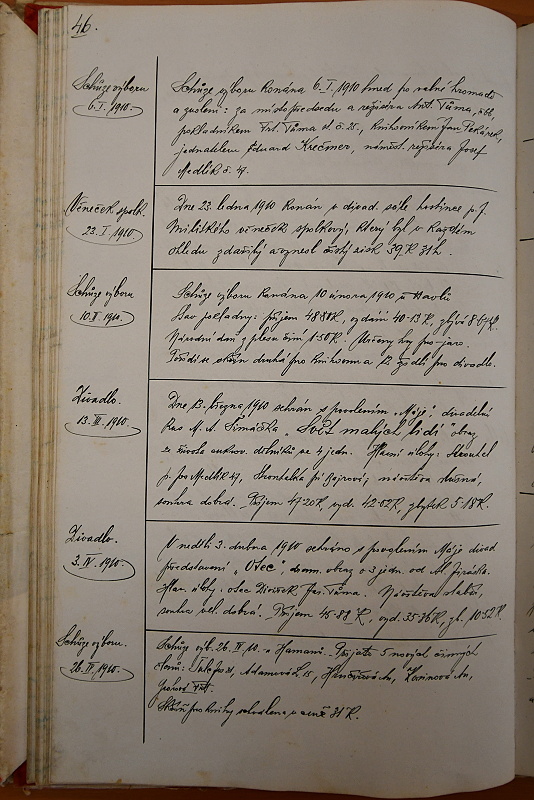 46.
Schůze výboru
6. I. 1910.
Schůze výboru konána 6. I. 1910 hned po valné hromadě
a zvoleni: za místopředsedu a režiséra Ant. Tůma,
pokladníkem Frt. Tůma st. č. 25, knihovníkem Jan Pekárek,
jednatelem Eduard Krečmer, náměst. režiséra Josef
Medlík č. 47.
Věneček spolk.
23. I. 1910.
Dne 23. ledna 1910 konán v divad. sále hostince p. J.
Milického věneček spolkový, který byl v každém
ohledu zdařilý a vynesl čistý zisk 39 K 31 h.
Schůze výboru
10. II. 1910.
Schůze výboru konána 10 února 1910 u Havlů
Stav pokladny: příjem 48·80 K, vydání 40·13 K, zbývá 8·67 K.
Národní daň z plesu činí 1·50 K. Určeny hry pro jaro.
skříň druhá pro knihovnu a židlí pro divadlo.
Divadlo.
13. III. 1910.
Dne 13. března 1910 sehrán s proslovem „Máje“, divadelní
kus M. A. Šimáčka „Svět malých lidí“ obraz
ze života cukrov. dělníků ve 4 jedn. Hlavní úlohy:
p. Jos Medlík 47, návštěva slušná,
souhra dobrá. Příjem 47·20 K, vyd. 42·02 K, zbytek 5·18 K.
Divadlo.
3. IV. 1910.
V neděli 3. dubna 1910 sehráno s proslovem Máje divad
představení „Otec“, dram. obraz o 3 jedn. od Al. Jiráska.
Hlav. úlohy: otec Divíšek Jan Tůma. Návštěva slabší,
souhra vel. dobrá. Příjem 45·88 K, vyd. 35·36 K, zb. 10·52 K.
Schůze výboru.
26. IV. 1910.
Schůze výb. 26. IV. 10. u Hamanů. Přijato 5 nových činných
členů: Adamová L 15,
Skříň pro knihy schválena v ceně 31 K.